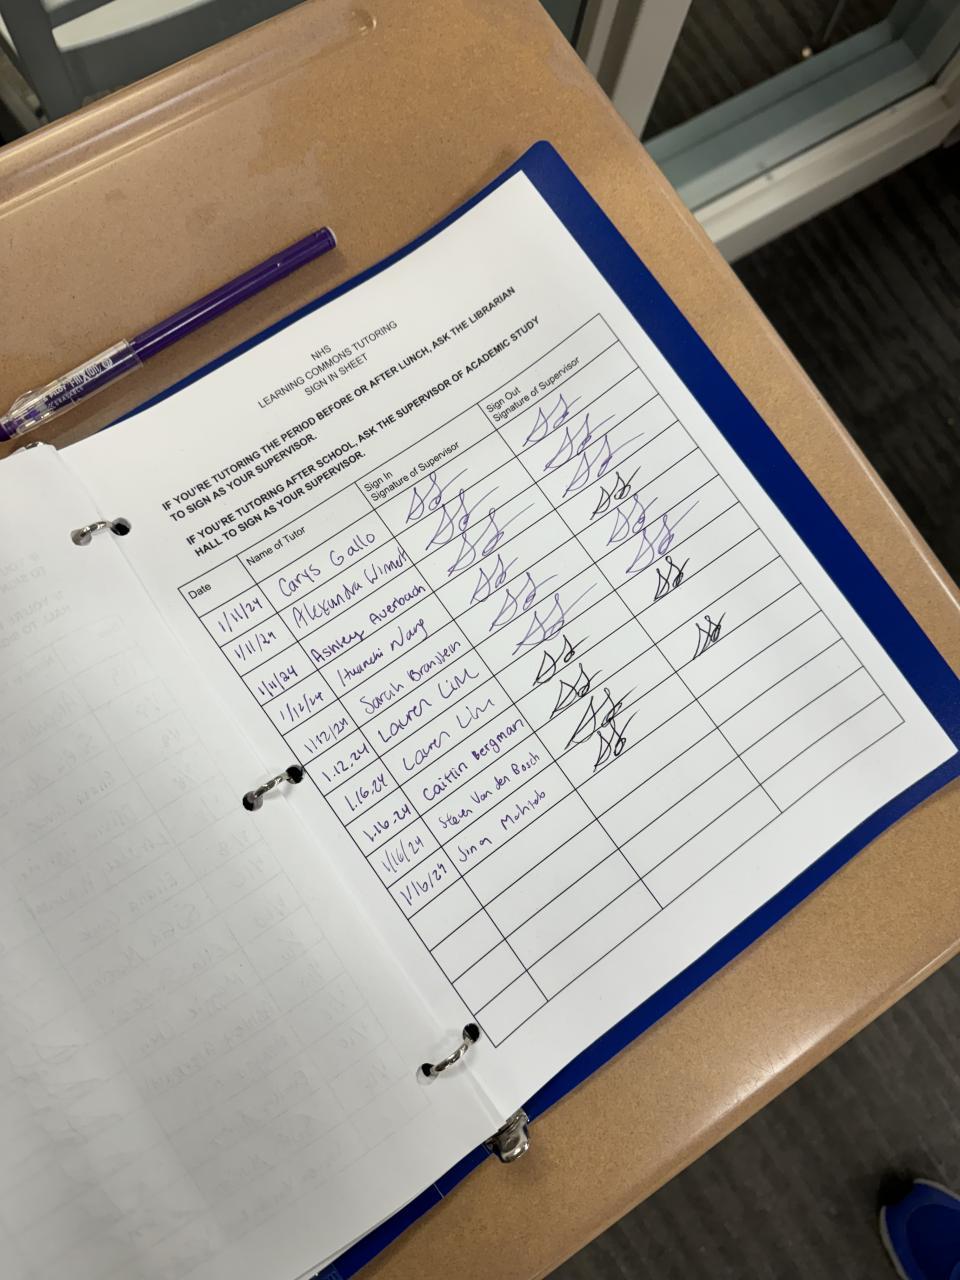 NHS
LEARNING COMMONS TUTORING
SIGN IN SHEET
IF YOU'RE TUTORING THE PERIOD BEFORE OR AFTER LUNCH, ASK THE LIBRARIAN
TO SIGN AS YOUR SUPERVISOR.
IF YOU'RE TUTORING AFTER SCHOOL, ASK THE SUPERVISOR OF ACADEMIC STUDY
HALL TO SIGN AS YOUR SUPERVISOR.
Date Name of Tutor Sign In Signature of Supervisor Sign Out Signature of Supervisor
1/11/24 Carys Gallo
1/11/24 Alexandra
1/11/24 Ashley Auerbach
1/12/24
1/12/24 Sarah Branstein
1.12.24 Lauren Lim
1.16.24 Lauren Lim
1.16.24 Caitlin Bergman
1/16/24 Steven Van den Bosch
1/16/24